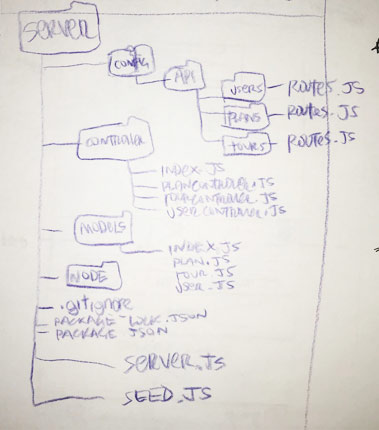 SERVER
CONFIG
API
USERS ROUTES.JS
PLANS ROUTES.JS
TOURS ROUTES.JS
CONTROLLER
INDEX.JS
PLANCONTROLLER.JS
TOURCONTROLLER.JS
USERCONTROLLER.JS
MODELS
INDEX.JS
PLAN.JS
TOUR.JS
USER.JS
NODE
.gitignore
PACKAGE-LOCK.JSON
PACKAGE.JSON
SERVER.JS
SEED.JS